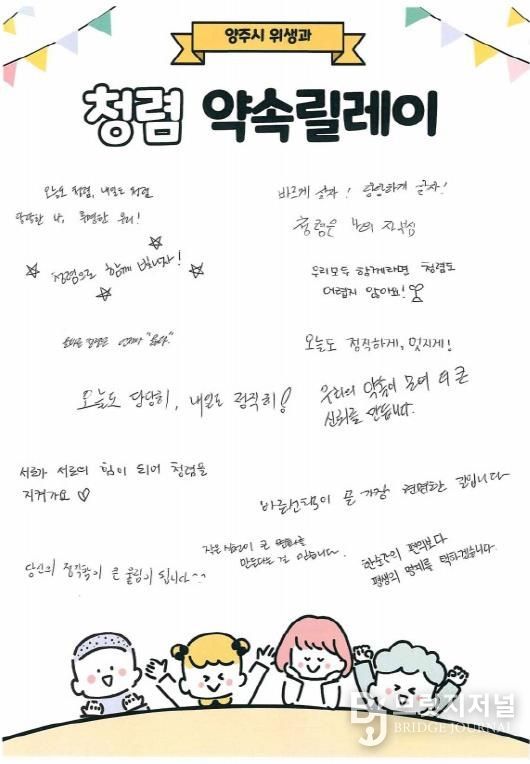 양주시 위생과
청렴 약속릴레이
오늘도 청렴, 내일도 청렴
당당한 나, 투명한 우리!
바르게 살자! 당당하게 살자!
청렴은 나의 자부심
청렴으로 함께 빛나자!
우리모두 함께라면 청렴도
어렵지 않아요!
오늘도 정직하게, 멋지게!
오늘도 당당히, 내일도 정직히!
우리의 약속이 모여 더 큰
신뢰를 만듭니다.
서로가 서로의 힘이 되어 청렴을
지켜가요 ♡
바른선택이 곧 가장 현명한 길입니다
작은 실천이 큰 변화를
만든다는 걸 믿습니다.
한순간의 편의보다
평생의 명예를 택하겠습니다.
당신의 정직함이 큰 울림이 됩니다^^
브릿지저널
BRIDGE JOURNAL